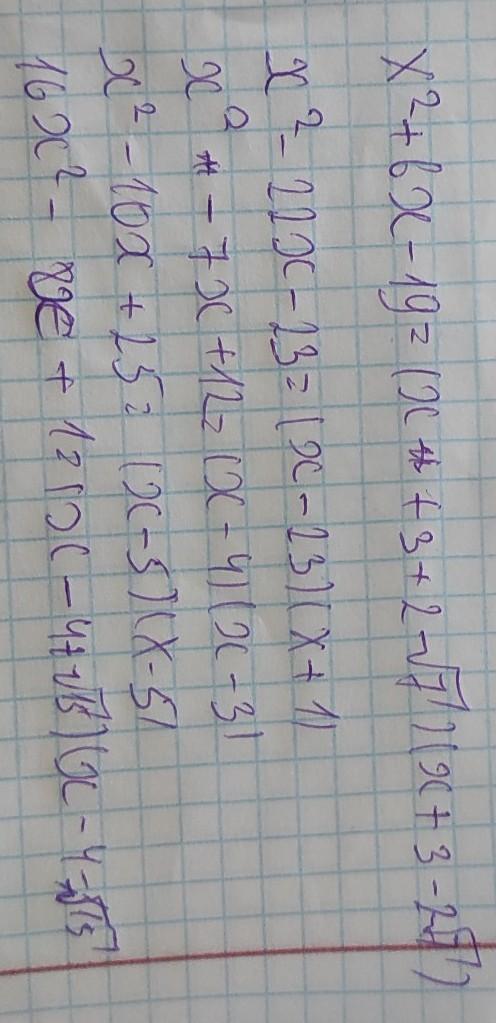 x² + 6x - 19 = (x + 3 + 2√7)(x + 3 - 2√7)
x² - 22x - 23 = (x - 23)(x + 1)
x² - 7x + 12 = (x - 4)(x - 3)
x² - 10x + 25 = (x - 5)(x - 5)
16x² - 8x + 1 = (x - 4 + √15)(x - 4 - √15